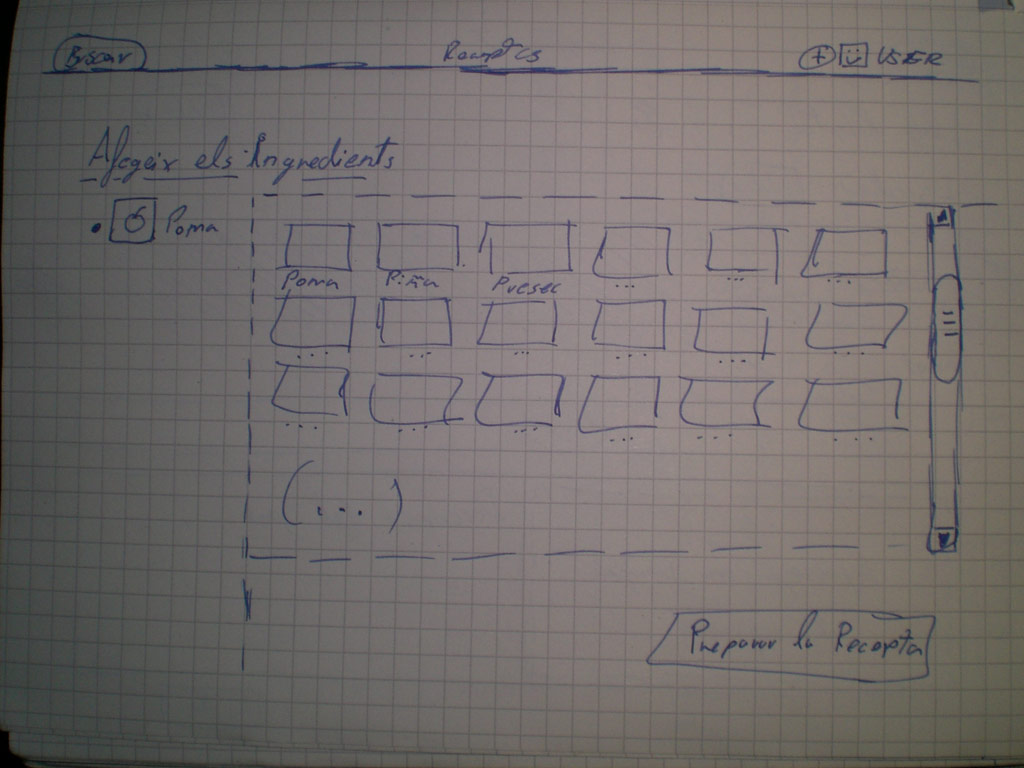 Buscar Receptes + USER
Afegeix els Ingredients
Poma
Poma Piña Presec ... ... ...
... ... ... ... ... ...
... ... ... ... ... ...
(...)
Preparar la Recepta